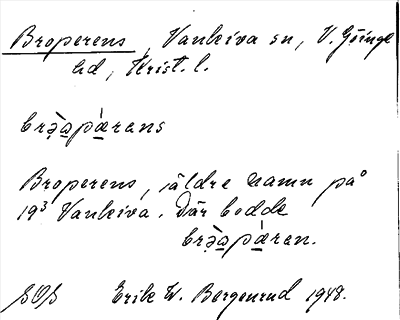 Broperens, Vankiva sn, V. Göinge
hd, Krist. l.
brə̀ɑpá̱rans
Broperens, äldre namn på
19³ Vankiva. Där bodde
brə̀ɑpá̱ren.
SOS Erik W. Bergenrud 1948.